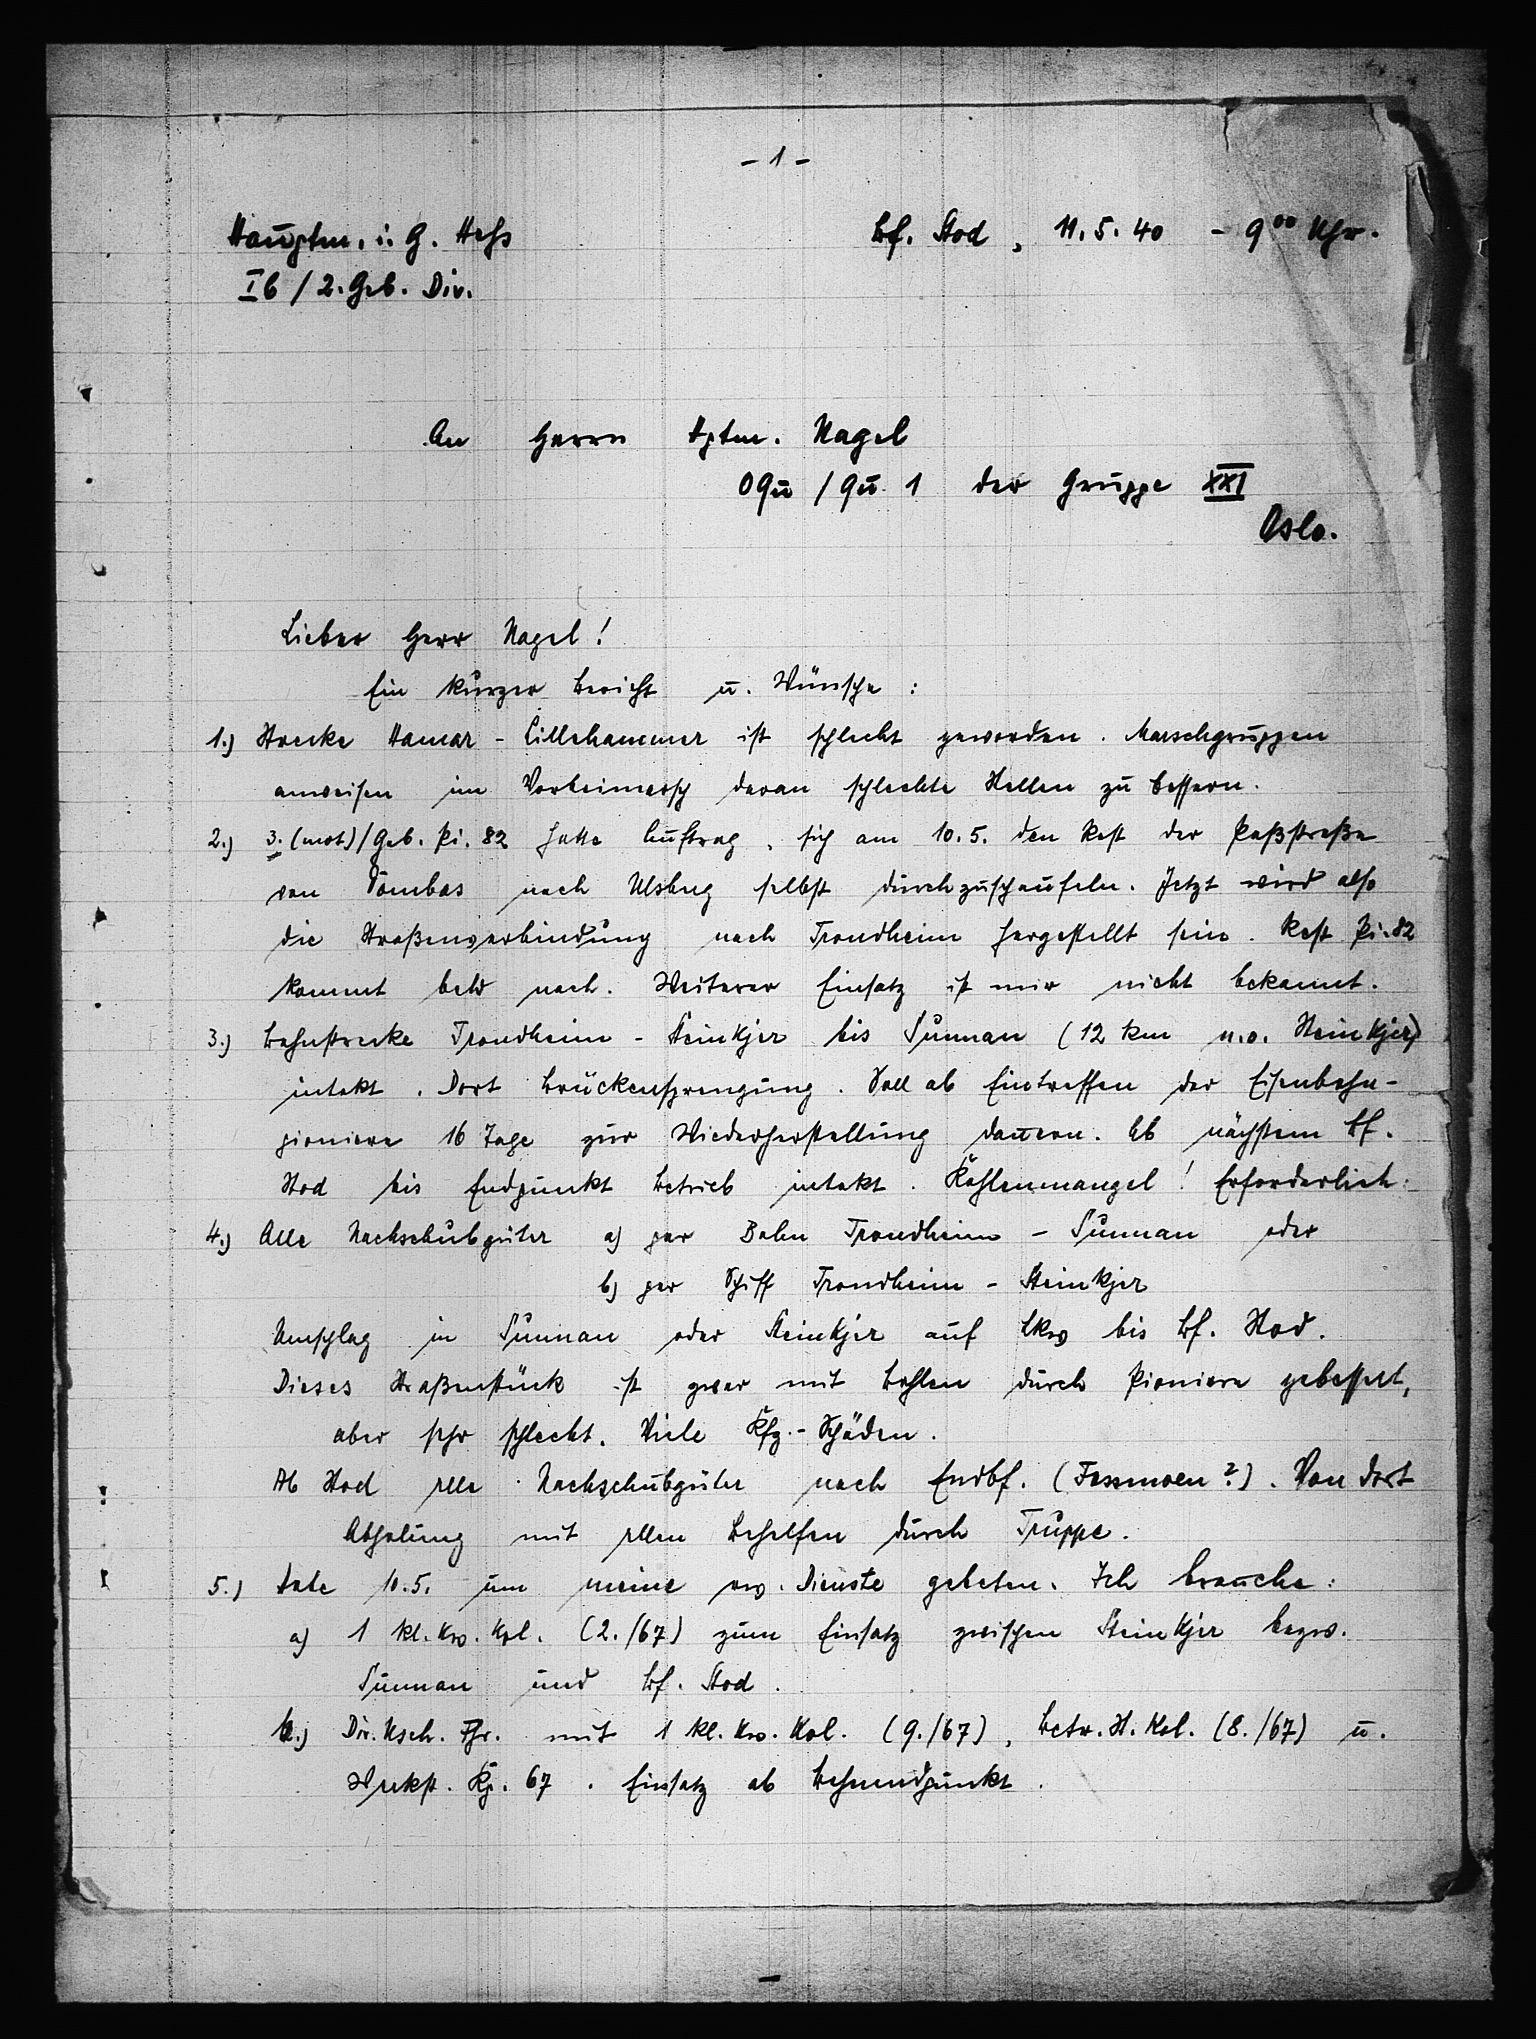 - 1 -
Hauptm. i. G. Hess
Bf. Stod, 11.5.40 - 9⁰⁰ Uhr.
Ib / 2. Geb. Div.
An Herrn Hptm. Nagel
OQu / Qu. 1 der Gruppe XXI
Oslo.
Lieber Herr Nagel!
Ein kurzer Bericht u. Wünsche :
1.) Strecke Hamar - Lillehammer ist schlecht geworden. Marschgruppen
anweisen im Vorbeimarsch daran schlechte Stellen zu bessern.
2.) 3. (mot)/Geb. Pi. 82 hatte Auftrag, sich am 10.5. den Rest der Paßstraße
von Dombas nach Ulsbug selbst durchzuschaufeln. Jetzt wird also
die Straßenverbindung nach Trondheim hergestellt sein. Rest Pi. 82
kommt bald nach. Weiterer Einsatz ist mir nicht bekannt.
3.) Bahnstrecke Trondheim - Steinkjer bis Sunnan (12 km n.o. Steinkjer)
intakt. Dort Brückensprengung. Soll ab Eintreffen der Eisenbahn-
pioniere 16 Tage zur Wiederherstellung dauern. Ab nächstem Bf.
Stod bis Endpunkt Betrieb intakt. Kohlenmangel! Erforderlich:
4.) Alle Nachschubgüter a) per Bahn Trondheim - Sunnan oder
b) per Schiff Trondheim - Steinkjer
Umschlag in Sunnan oder Steinkjer auf Lkw bis Bf. Stod.
Dieses Straßenstück ist zwar mit Bohlen durch Pioniere gebessert,
aber sehr schlecht. Viele Kfz.-Schäden.
Ab Stod alle Nachschubgüter nach Endbf. (Fossmoen ?). Von dort
Abholung mit allen Behelfen durch Truppe.
5.) Habe 10.5. um meine rw. Dienste gebeten. Ich brauche:
a) 1 kl. Kw. Kol. (2./67) zum Einsatz zwischen Steinkjer bezw.
Sunnan und Bf. Stod.
b.) Div. Nsch. Fhr. mit 1 kl. Kw. Kol. (9./67), Betr. St. Kol. (8./67) u.
Werkst. Kp. 67. Einsatz ab Bahnendpunkt.